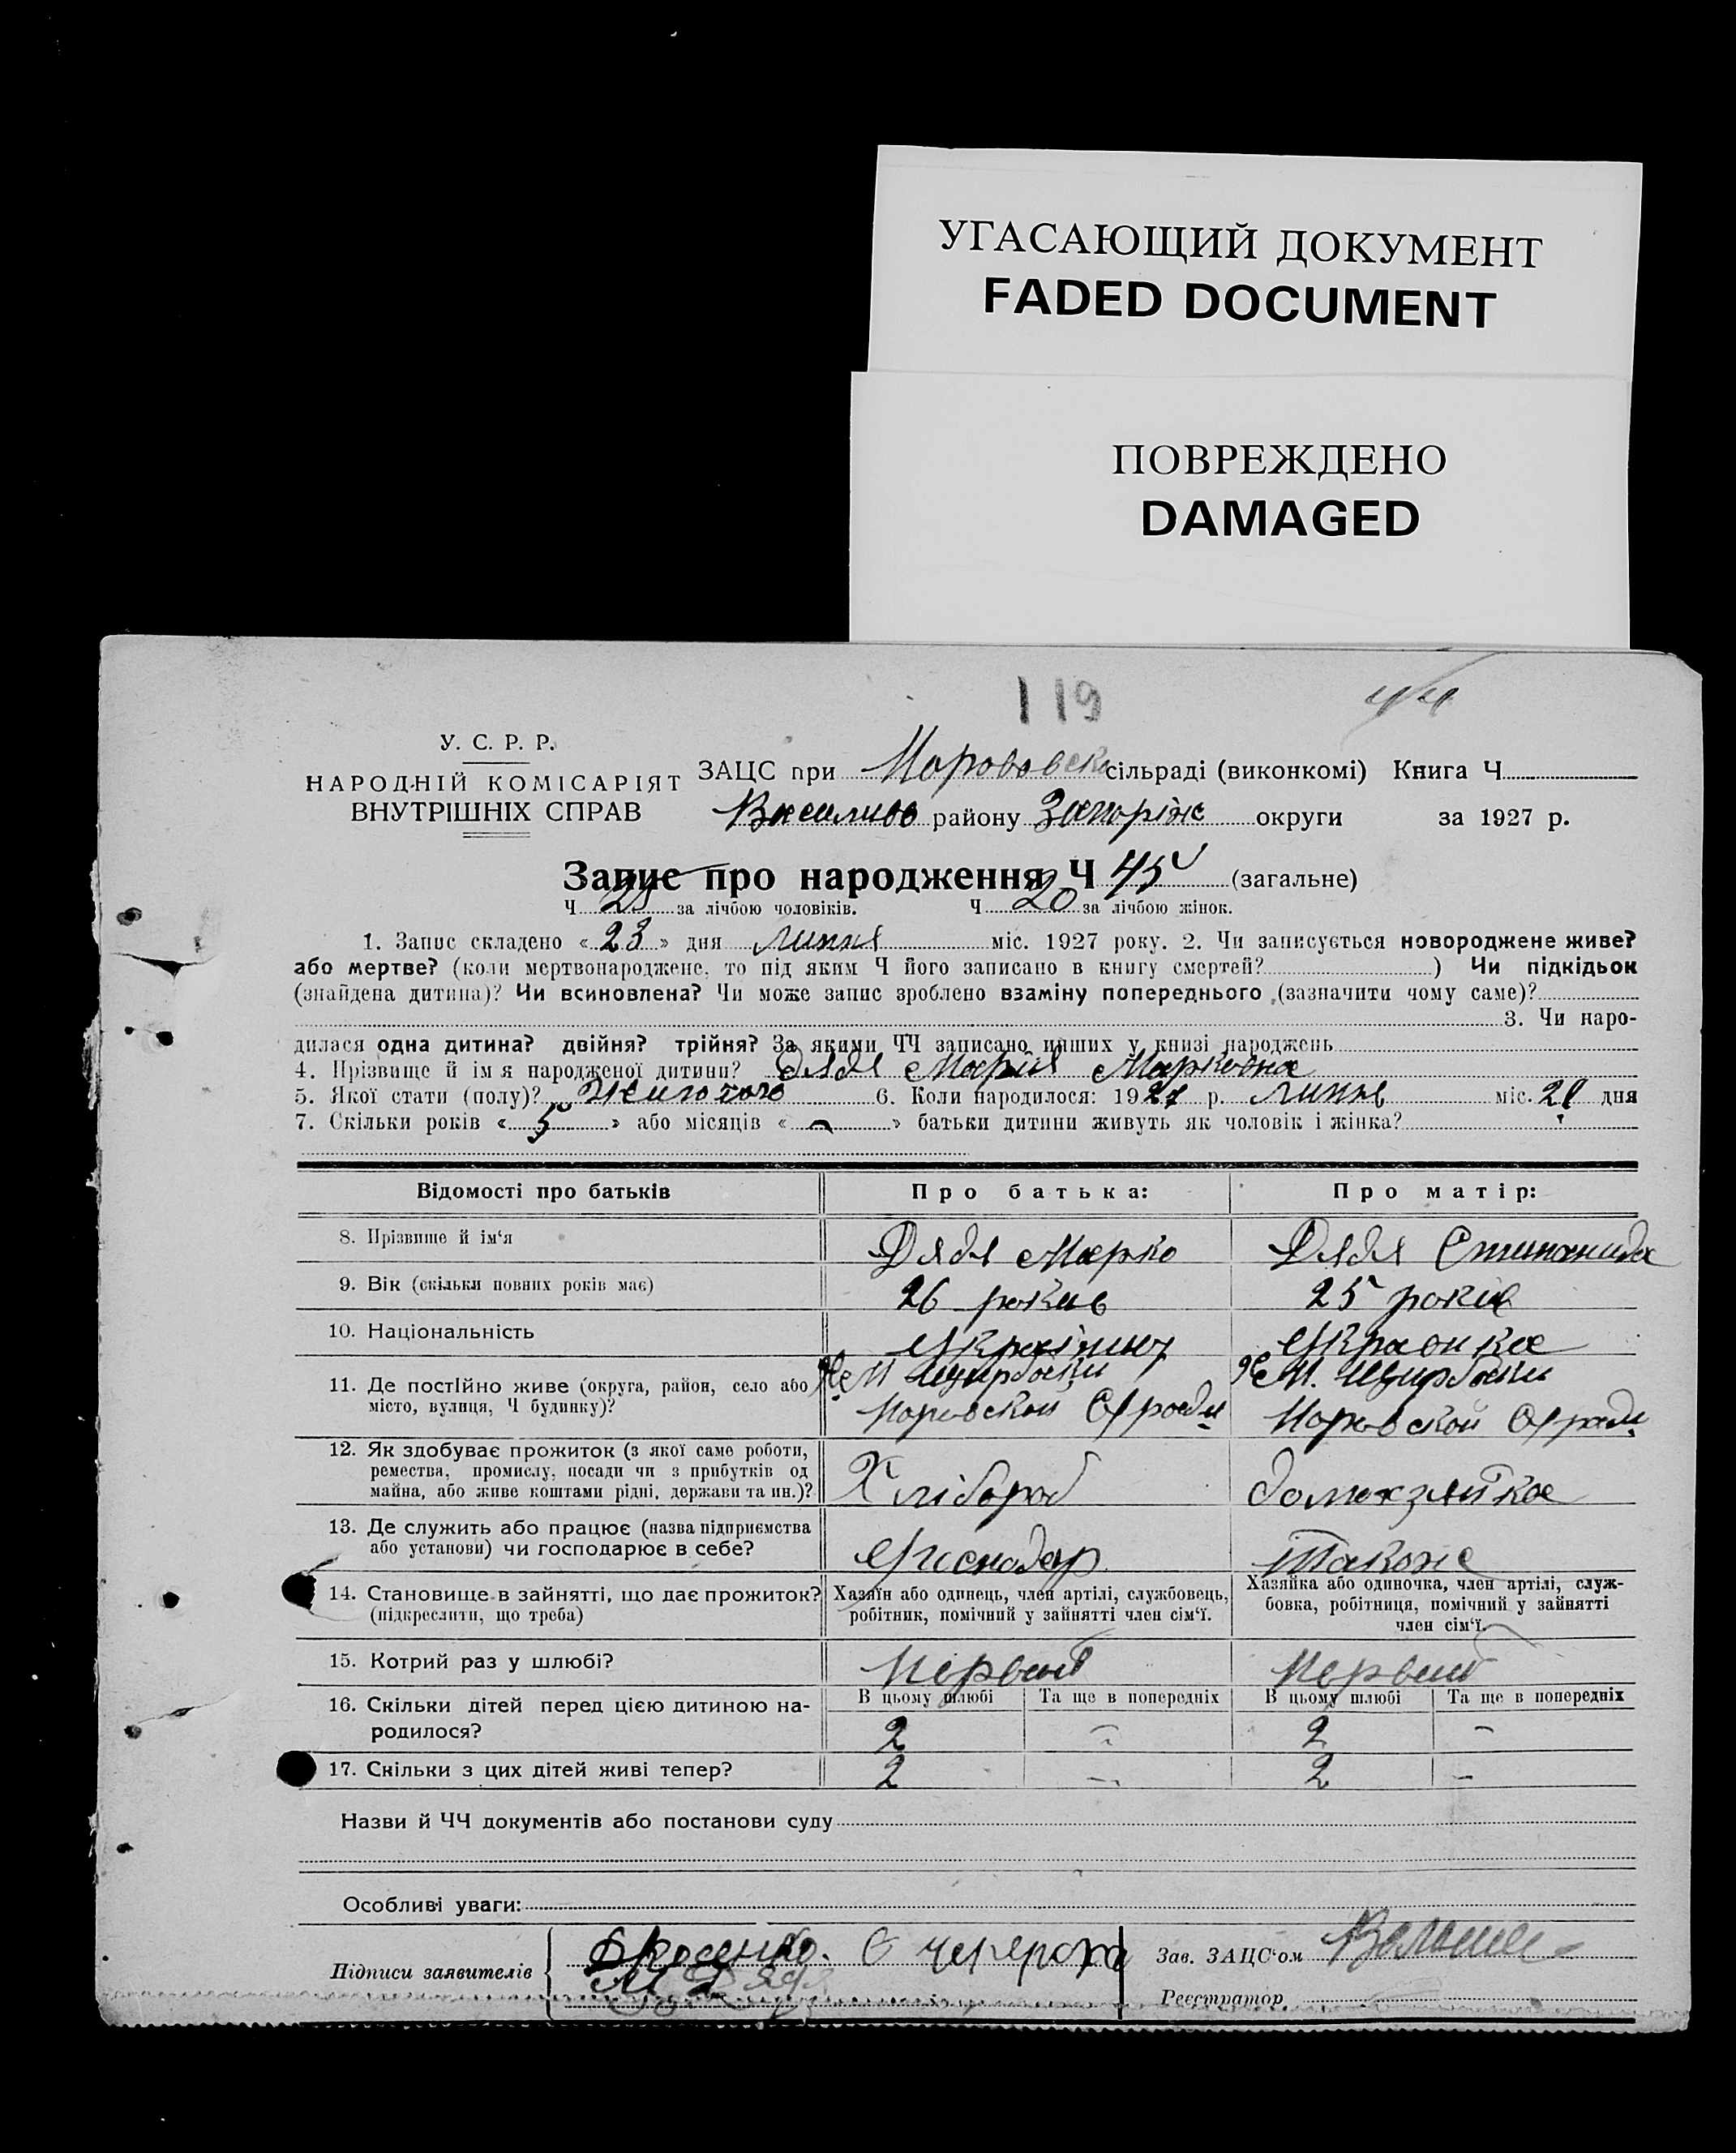 УГАСАЮЩИЙ ДОКУМЕНТ
FADED DOCUMENT
ПОВРЕЖДЕНО
DAMAGED
119
У. С. Р. Р.
НАРОДНІЙ КОМІСАРІЯТ
ВНУТРІШНІХ СПРАВ
ЗАЦС при сільраді (виконкомі) Книга Ч
району Запоріж округи за 1927 р.
Запис про народження Ч 45 (загальне)
Ч 25 за лічбою чоловіків. Ч 20 за лічбою жінок.
1. Запис складено « 23 » дня липня міс. 1927 року. 2. Чи записується новороджене живе?
або мертве? (коли мертвонароджене, то під яким Ч його записано в книгу смертей? ) Чи підкідьок
(знайдена дитина)? Чи всиновлена? Чи може запис зроблено взаміну попереднього (зазначити чому саме)?
3. Чи наро-
дилася одна дитина? двійня? трійня? За якими ЧЧ записано инших у книзі народжень
4. Прізвище й імя народженої дитини? Дядя Марія Марковна
5. Якої стати (полу)? 6. Коли народилося: 1927 р. липня міс. дня
7. Скільки років « 5 » або місяців « - » батьки дитини живуть як чоловік і жінка?
Відомості про батьків Про батька: Про матір:
8. Прізвище й ім'я Дядя Марко Дядя Степанида
9. Вік (скільки повних років має) 26 років 25 років
10. Національність
11. Де постійно живе (округа, район, село або
місто, вулиця, Ч будинку)?
12. Як здобуває прожиток (з якої саме роботи,
ремества, промислу, посади чи з прибутків од
майна, або живе коштами рідні, держави та ин.)? Хлібороб домохзяйка
13. Де служить або працює (назва підприємства
або установи) чи господарює в себе? Також
14. Становище в зайнятті, що дає прожиток?
(підкреслити, що треба)
Хазяїн або одинець, член артілі, службовець,
робітник, помічний у зайнятті член сім'ї.
Хазяйка або одиночка, член артілі, служ-
бовка, робітниця, помічний у зайнятті
член сім'ї.
15. Котрий раз у шлюбі? Первий Первий
16. Скільки дітей перед цією дитиною на-
родилося?
В цьому шлюбі Та ще в попередніх В цьому шлюбі Та ще в попередніх
2 - 2 -
17. Скільки з цих дітей живі тепер? 2 - 2 -
Назви й ЧЧ документів або постанови суду
Особливі уваги:
Підписи заявителів
М Дядя
Зав. ЗАЦС'ом
Реєстратор